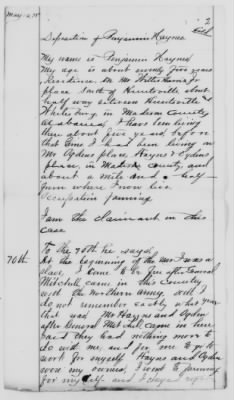 May 12, 18
2
Deposition of Benjamin Haynes
My name is Benjamin Haynes
My age is about seventy five years
Residence. On Mr Willis Harris
place South of Huntsville about
half way between Huntsville and
Whitesburg in Madison County
Alabama. I have been living
there about five years, before
that time I had been living on
Mr Ogdens place, Haynes & Ogdens
place, in Madison County, and
about a mile and a half
from where I now live.
Occupation farming
I am the Claimant in this
case
To the 70th he says
70th
At the beginning of the war I was a
slave, I came to be free after General
Mitchell came in this County
with the Northern army, and I
do not remember exactly what year
that was. Mr Haynes and Ogden
after General Mitchell came in here
said they had nothing more to
do with me, and for me to go to
work for myself. Haynes and Ogden
were my owners. I went to farming
for myself and I stayed right